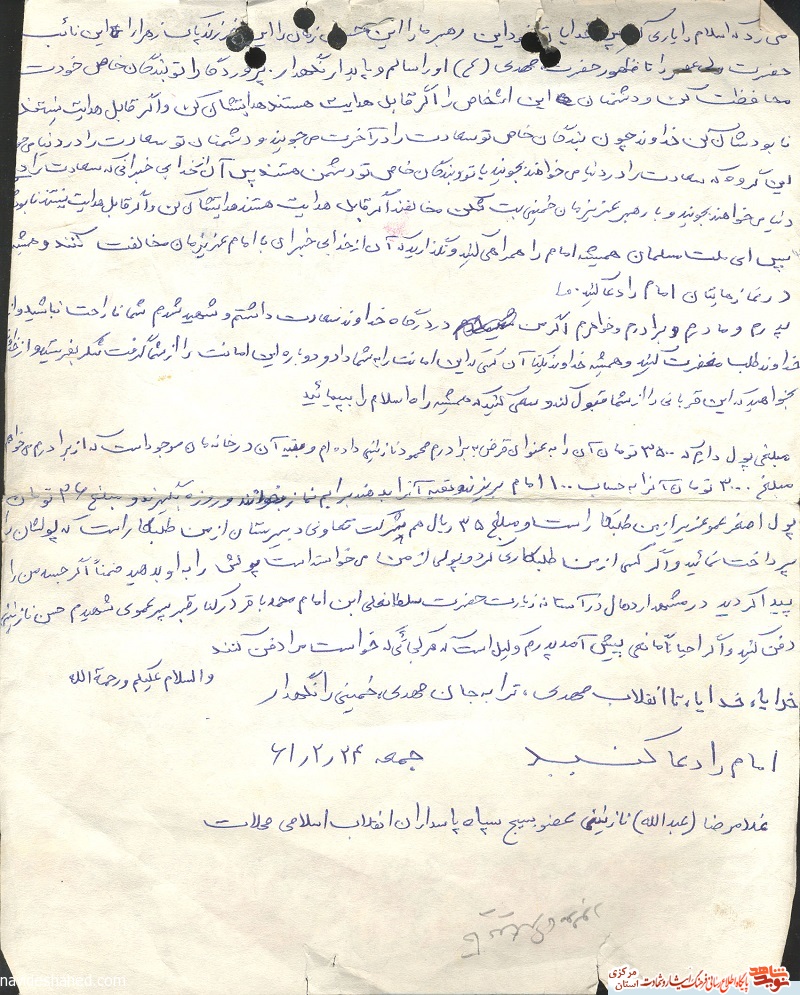 می رد که اسلام را یاری کن پس خدایا تو خود این رهبر ما را این زمان را این فرزند پاک زهرا را این نائب
حضرت ولی عصر را تا ظهور حضرت مهدی (عج) او را سالم و پایدار نگهدار. پروردگارا تو بندگان خاص خودت
محافظت کن و دشمنان این اشخاص را اگر قابل هدایت هستند هدایتشان کن و اگر قابل هدایت نیستند
نابودشان کن خداوند چون بندگان خاص تو سعادت را در آخرت می جویند و دشمنان تو سعادت را در دنیا می
این گروه که سعادت را در دنیا می خواهند بجویند با تو و بندگان خاص تو دشمن هستند پس آن از خدا بی خبرانی که سعادت را در
دنیا می خواهند بجویند و با رهبر عزیزمان خمینی بت شکن مخالفند اگر قابل هدایت هستند هدایتشان کن و اگر قابل هدایت نیستند نابود
پس ای ملت مسلمان همیشه امام را همراهی کنید و نگذارید که آن از خدا بی خبران با امام عزیزمان مخالفت کنند و همیشه
در نمازهایتان امام را دعا کنید.
پدرم و مادرم و برادرم و خواهرم اگر من در درگاه خداوند سعادت داشتم و شهید شدم شما ناراحت نباشید و از
خداوند طلب مغفرت کنید و همیشه خداوند یکتا آن کسی که این امانت را به شما داد و دوباره این امانت را از شما گرفت شکر بفرستید و از خدا
بخواهید که این قربانی را از شما قبول کند و سعی کنید که همیشه راه اسلام را بپیمائید
مبلغی پول دارم که ۳۵۰۰ تومان آن را به عنوان قرض به برادرم محمود نازنینی داده ام و بقیه آن در خانه مان موجود است که از برادرم می خواهم
مبلغ ۳۰۰۰ تومان آنرا به حساب ۱۰۰ امام بریزند و بقیه آنرا بدهند برایم نماز بخوانند و روزه بگیرند و مبلغ تومان
پول اصغر عمو عزیز از من طلبکار است و مبلغ ۳۵ ریال هم شرکت تعاونی دبیرستان از من طلبکار است که پولشان را
پرداخت نمائید و اگر کسی از من طلبکاری کرد و پولی از من می خواسته است پولش را به او بدهید ضمناً اگر جسد من را
پیدا کردید در مشهد اردهال در آستانه زیارت حضرت سلطانعلی ابن امام محمد باقر در کنار قبر پسر عموی شهیدم حسن نازنینی
دفن کنید و اگر احیاناً مانعی پیش آمد پدرم وکیل است که هر کجائی که خواست مرا دفن کنند
والسلام علیکم و رحمة الله
خدایا، خدایا، تا انقلاب مهدی، ترا به جان مهدی، خمینی را نگهدار
امام را دعا کنید
جمعه ۶۱/۲/۲۴
غلامرضا (عبدالله) نازنینی عضو بسیج سپاه پاسداران انقلاب اسلامی محلات
navideshahed.com
نوید شاهد
پایگاه اطلاع رسانی فرهنگ ایثار و شهادت
استان مرکزی